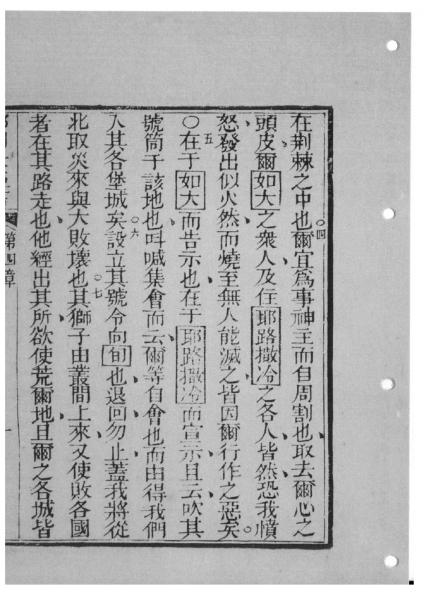 在荆棘之中也○四爾宜爲事神主而自周割也取去爾心之
頭皮爾如大之衆人及住耶路撒冷之各人皆然恐我憤
怒發出似火然而燒至無人能滅之皆因爾行作之惡矣○
○五在于如大而告示也在于耶路撒冷而宣示且云吹其
號筒于該地也呌喊集會而云爾等自會也而由得我們
入其各堡城矣○六設立其號令向旬也退回勿止蓋我將從
北取災來與大敗壞也○七其獅子由叢間上來又使敗各國
者在其路走也他經出其所欲使荒爾地且爾之各城皆
第四章